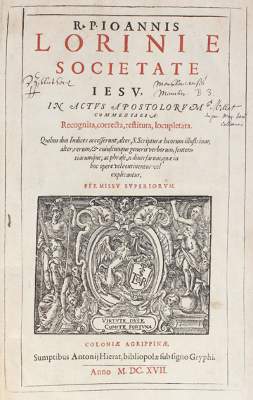 R. P. IOANNIS
LORINI E
SOCIETATE
IESV,
IN ACTVS APOSTOLORVM
COMMENTARIA
Recognita, correcta, restituta, locupletata.
Quibus duo Indices accesserunt, alter S. Scripturæ locorum illustriorum,
alter rerum, & cuiuscunque generis verborum, senten-
tiarumque, ac phrasis,
hoc opere vel
explicantur.
PERMISSV SUPERIORVM.
VIRTVTE DVCE,
COMITE FORTVNA
COLONIÆ AGRIPPINÆ,
Sumptibus Antonij Hierat, bibliopolæ sub signo Gryphi.
Anno M. DC. XVII.